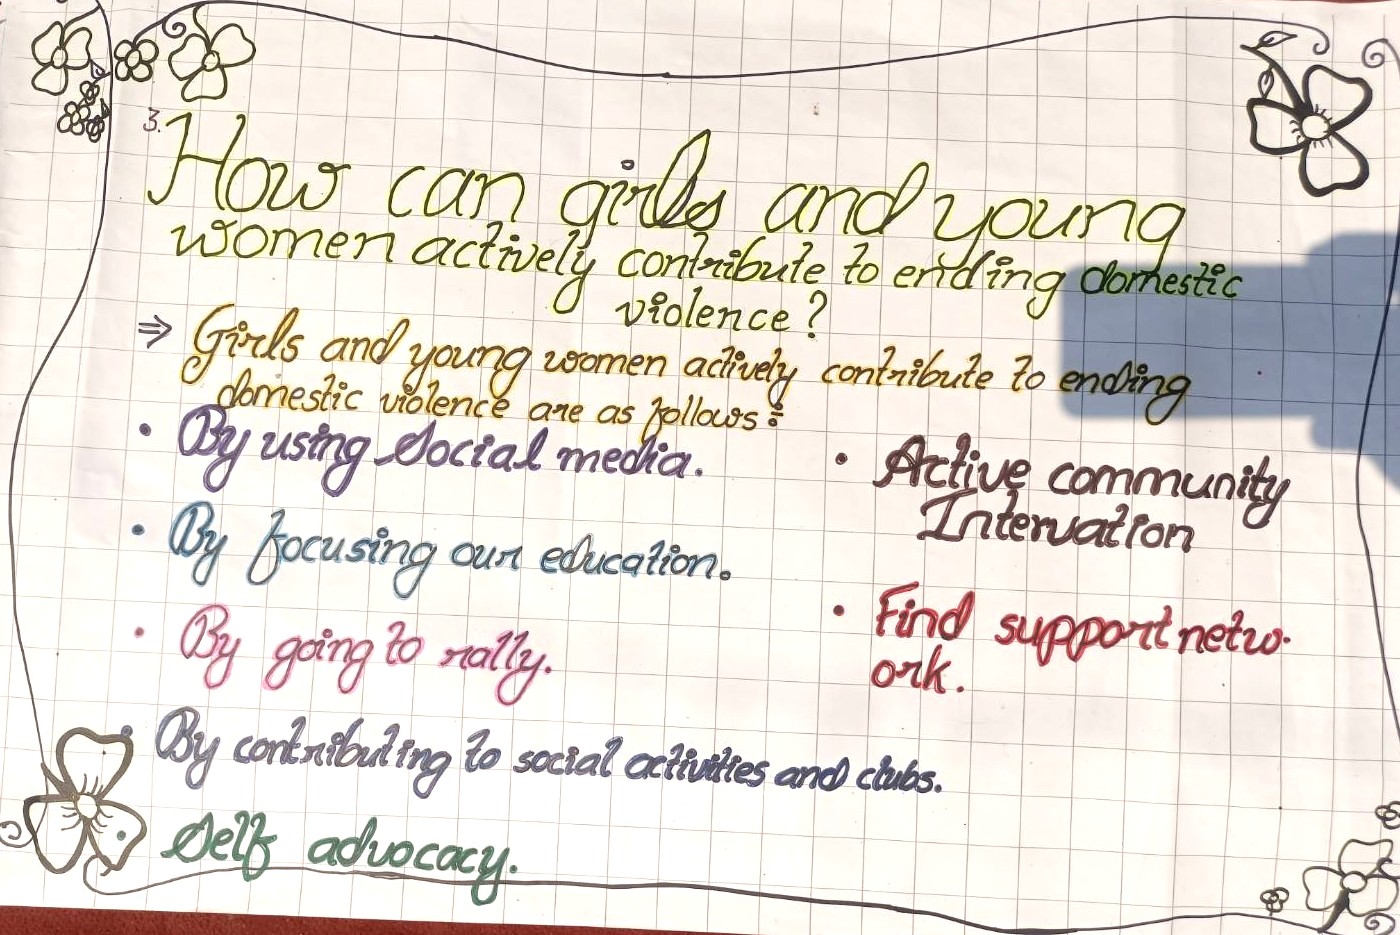 3. How can girls and young
women actively contribute to ending domestic
violence?
⇒ Girls and young women actively contribute to ending
domestic violence are as follows:
• By using Social media.
• By focusing our education.
• By going to rally.
• By contributing to social activities and clubs.
• Self advocacy.
• Active community
Intervation
• Find support netw-
ork.